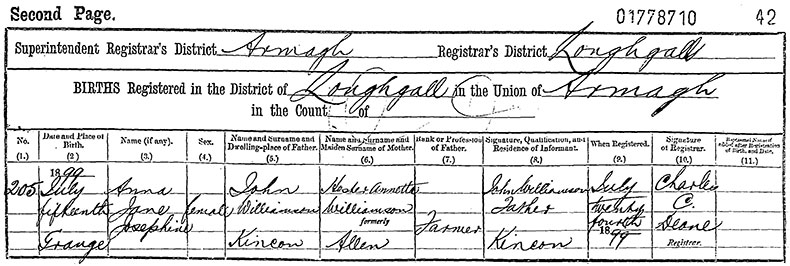 Second Page. 01778710 42
Superintendent Registrar's District Armagh Registrar's District Loughgall
BIRTHS Registered in the District of Loughgall in the Union of Armagh
in the Count of
No. Date and Place of Birth. Name (if any). Sex. Name and Surname and Dwelling-place of Father. Name and Surname and Maiden Surname of Mother. Rank or Profession of Father. Signature, Qualification, and Residence of Informant. When Registered. Signature of Registrar. Baptismal Name if added after Registration of Birth, and Date.
(1.) (2.) (3.) (4.) (5.) (6.) (7.) (8.) (9.) (10.) (11.)
1899
205 July Anna John Hester Annotta John Williamson July Charles
fifteenth Jane female Williamson Williamson Father twenty C.
Josephine formerly Farmer fourth Deane
Grange Kincon Allen Kincon 1899 Registrar.